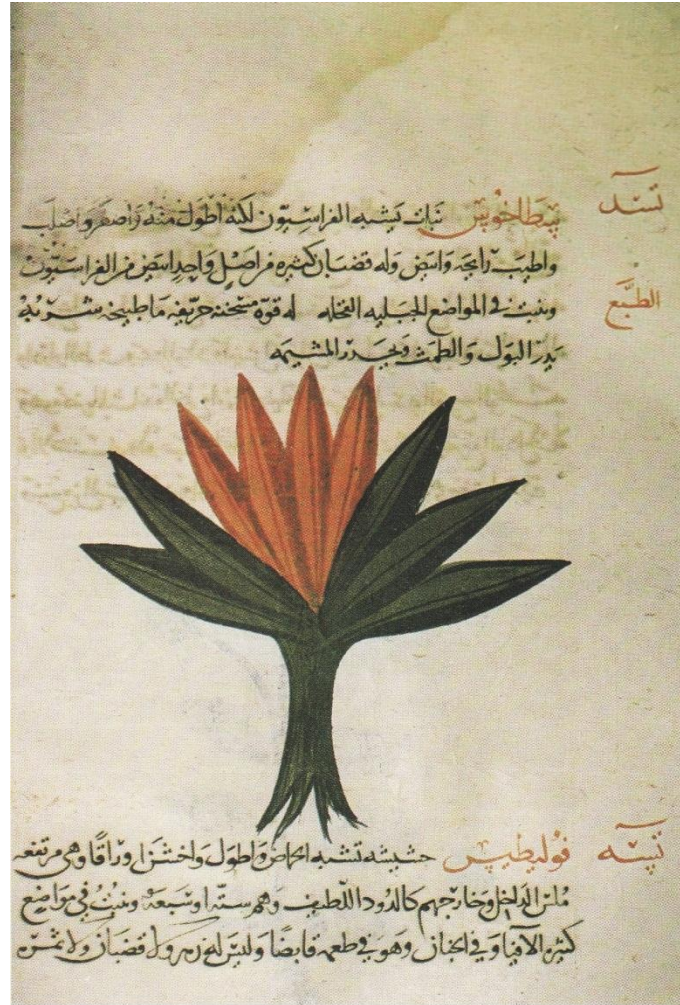 نبات يشبه الفراسيون لكنه اطول منه واصغر واصلب
واطيب رائحة وابيض وله قضبان كثيره من اصل واحد ابيض من الفراسيون
وينبت في المواضع الجبليه له قوة مسخنه حريفه ما طبيخه شربه
يدر البول والطمث ويحدر المشيمه
الطبع
حشيشه تشبه الحماض واطول واخشن اوراقا وهي مرتفعه
ملس الداخل وخارجهم كالدود اللطيف وهم سته او سبعه وينبت في مواضع
كثيره الافيا وفي الجنان وهو في طعمه قابضا وليس له زهر ولا قضبان ولا ثمره